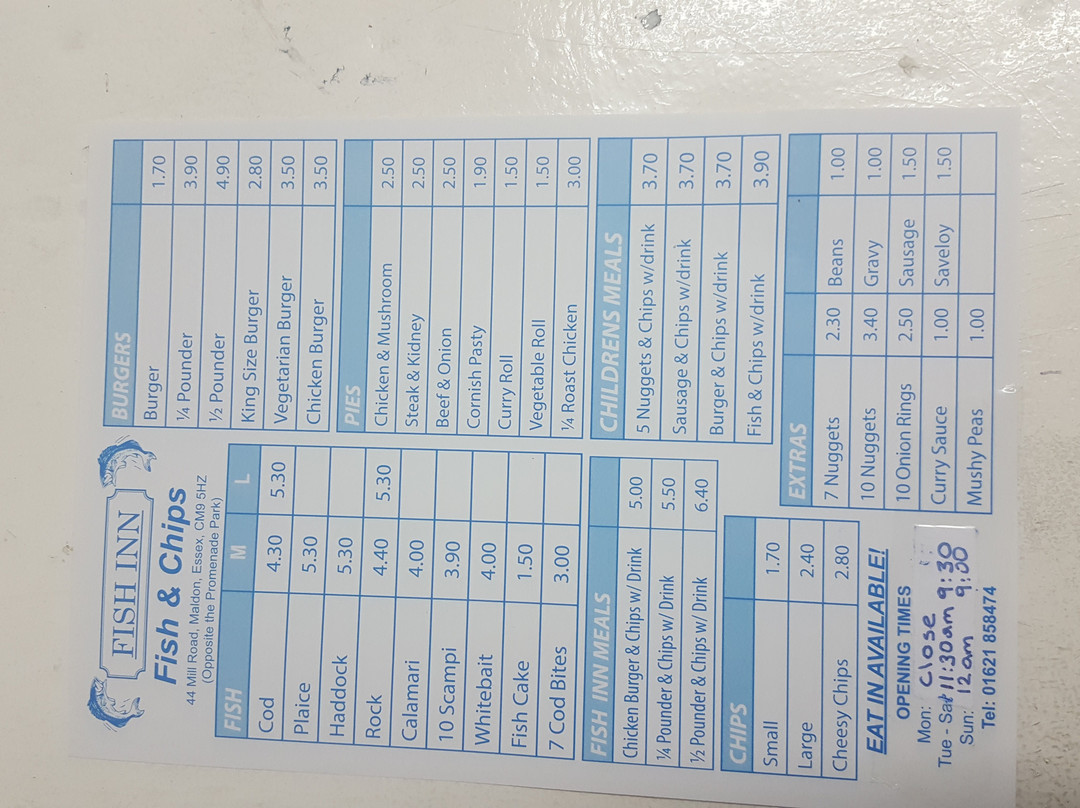 FISH INN
Fish & Chips
44 Mill Road, Maldon, Essex, CM9 5HZ
(Opposite the Promenade Park)
FISH M L
Cod 4.30 5.30
Plaice 5.30
Haddock 5.30
Rock 4.40 5.30
Calamari 4.00
10 Scampi 3.90
Whitebait 4.00
Fish Cake 1.50
7 Cod Bites 3.00
FISH INN MEALS
Chicken Burger & Chips w/ Drink 5.00
¼ Pounder & Chips w/ Drink 5.50
½ Pounder & Chips w/ Drink 6.40
CHIPS
Small 1.70
Large 2.40
Cheesy Chips 2.80
EAT IN AVAILABLE!
OPENING TIMES
Mon: Close
Tue - Sat 11:30am 9:30
Sun: 12am 9:00
Tel: 01621 858474
BURGERS
Burger 1.70
¼ Pounder 3.90
½ Pounder 4.90
King Size Burger 2.80
Vegetarian Burger 3.50
Chicken Burger 3.50
PIES
Chicken & Mushroom 2.50
Steak & Kidney 2.50
Beef & Onion 2.50
Cornish Pasty 1.90
Curry Roll 1.50
Vegetable Roll 1.50
¼ Roast Chicken 3.00
CHILDRENS MEALS
5 Nuggets & Chips w/drink 3.70
Sausage & Chips w/drink 3.70
Burger & Chips w/drink 3.70
Fish & Chips w/drink 3.90
EXTRAS
7 Nuggets 2.30 Beans 1.00
10 Nuggets 3.40 Gravy 1.00
10 Onion Rings 2.50 Sausage 1.50
Curry Sauce 1.00 Saveloy 1.50
Mushy Peas 1.00